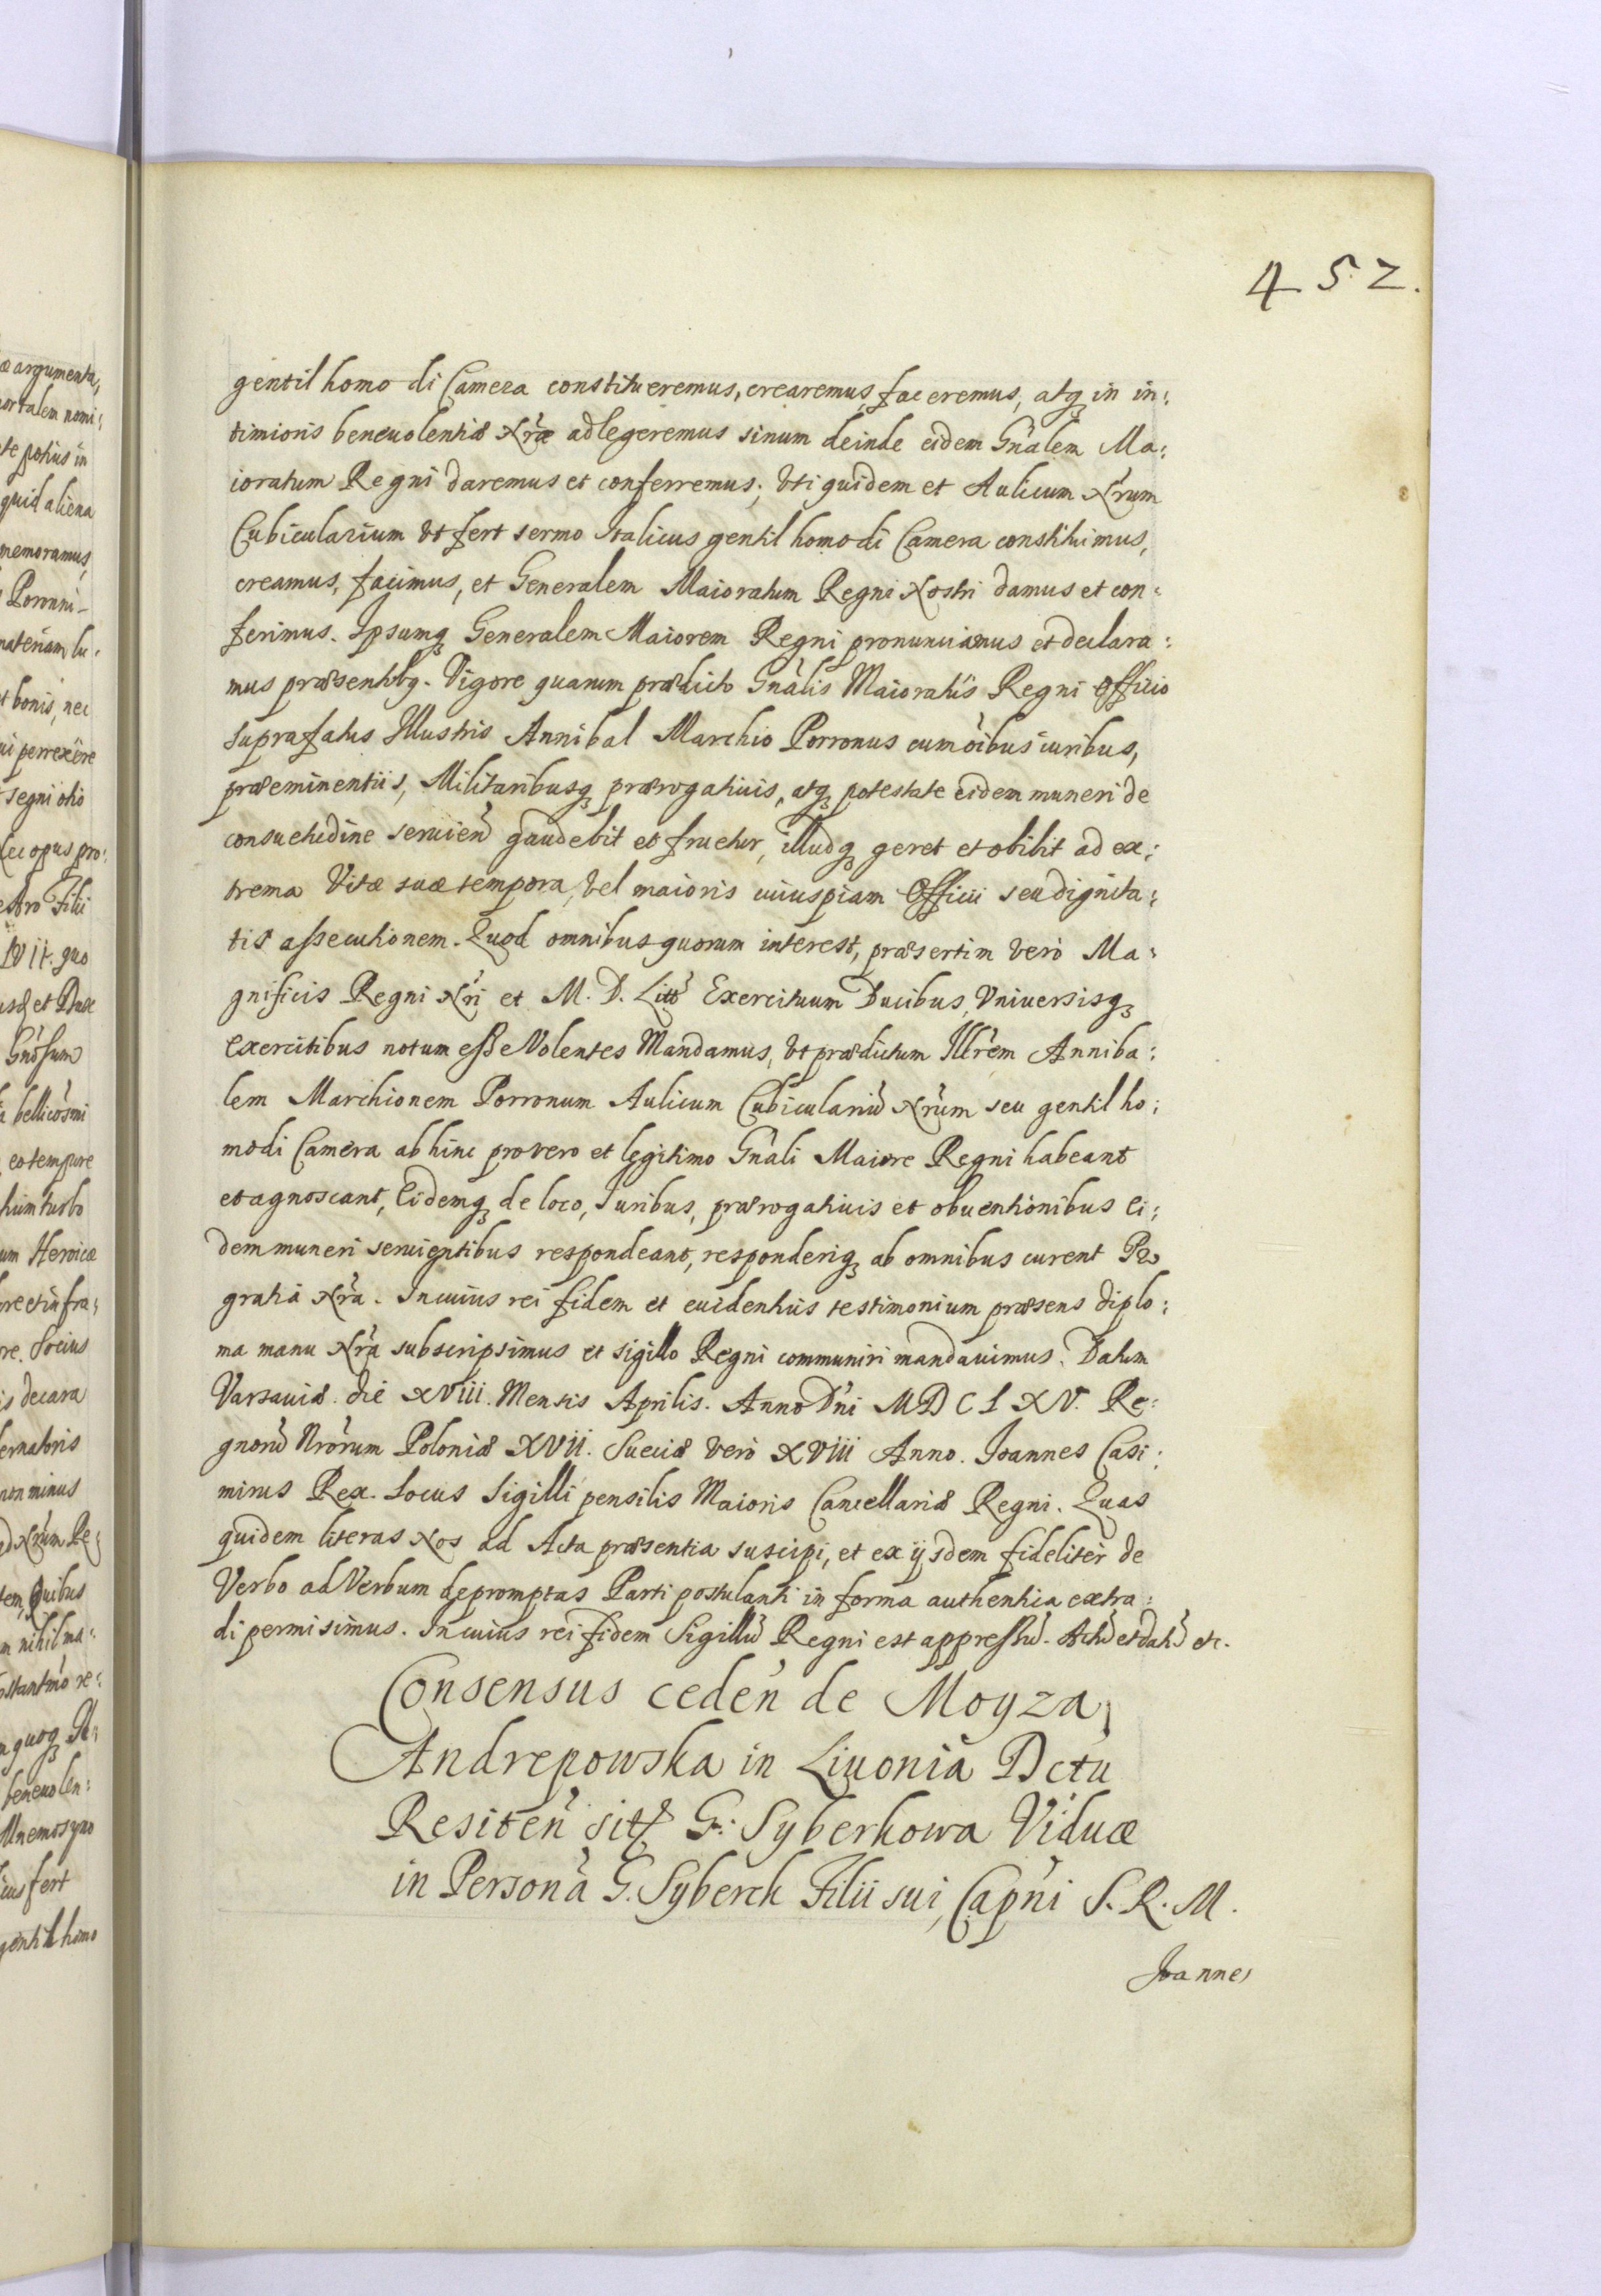 452.
gentil homo di Camera constitueremus, crearemus, faceremus, atq in in:
timioris beneuolentiæ Nræ adlegeremus sinum deinde eidem Gnalem Ma:
ioratum Regni daremus et conferremus; Vti quidem et Aulicum Nrum
Cubicularium Vt fert sermo Italicus gentil homo di Camera constituimus,
creamus, facimus, et Generalem Maioratum Regni Nostri damus et con:
ferimus. Ipsumq Generalem Maiorem Regni pronunciamus et declara:
mus præsentibq. Vigore quarum prædicto Gnalis Maioratus Regni Officio
suprafatus Illustris Annibal Marchio Porronus cum oibus iuribus,
præeminentiis, Militaribusq prærogatiuis, atq potestate eidem muneri de
consuetudine seruien gaudebit et fruetur, illudq geret et obibit ad ex:
trema Vitæ suæ tempora, Vel maioris cuiuspiam Officii seu dignita:
tis assecutionem. Quod omnibus quorum interest, præsertim Vero Ma:
gnificis Regni Nri et M. D. Litt Exercituum Ducibus, Vniuersisq
Exercitibus notum esse Volentes Mandamus, Vt prædictum Illrem Anniba:
lem Marchionem Porronum Aulicum Cubiculariu Nrum seu gentil ho:
mo di Camera ab hinc pro vero et legitimo Gnali Maiore Regni habeant
et agnoscant, Eidemq de loco, Iuribus, prærogatiuis et obuentionibus Ei:
dem muneri seruientibus respondeant, responderiq ab omnibus curent Pro
gratia Nra. In cuius rei fidem et euidentius testimonium præsens diplo:
ma manu Nra subscripsimus et sigillo Regni communiri mandauimus. Datum
Varsauiæ die XVIII. Mensis Aprilis. Anno Dni MDCLXV. Re:
gnoru Nrorum Poloniæ XVII. Sueciæ Vero XVIII Anno. Joannes Casi:
mirus Rex. Locus Sigilli pensilis Maioris Cancellariæ Regni. Quas
quidem literas Nos ad Acta præsentia suscipi, et ex ijsdem fideliter de
Verbo ad Verbum depromptas Parti postulanti in forma authentica extra:
di permisimus. In cuius rei fidem Sigillu Regni est appressu. Actu et datu etc.
Consensus ceden de Moyza
Andrepowska in Liuonia Dctu
Resiten sit G: Syberkowa Viduæ
in Persona G. Syberch Filii sui, Capni S. R. M.
Joannes